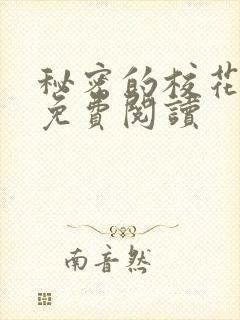 秘密的校花
免費閱讀
南音然